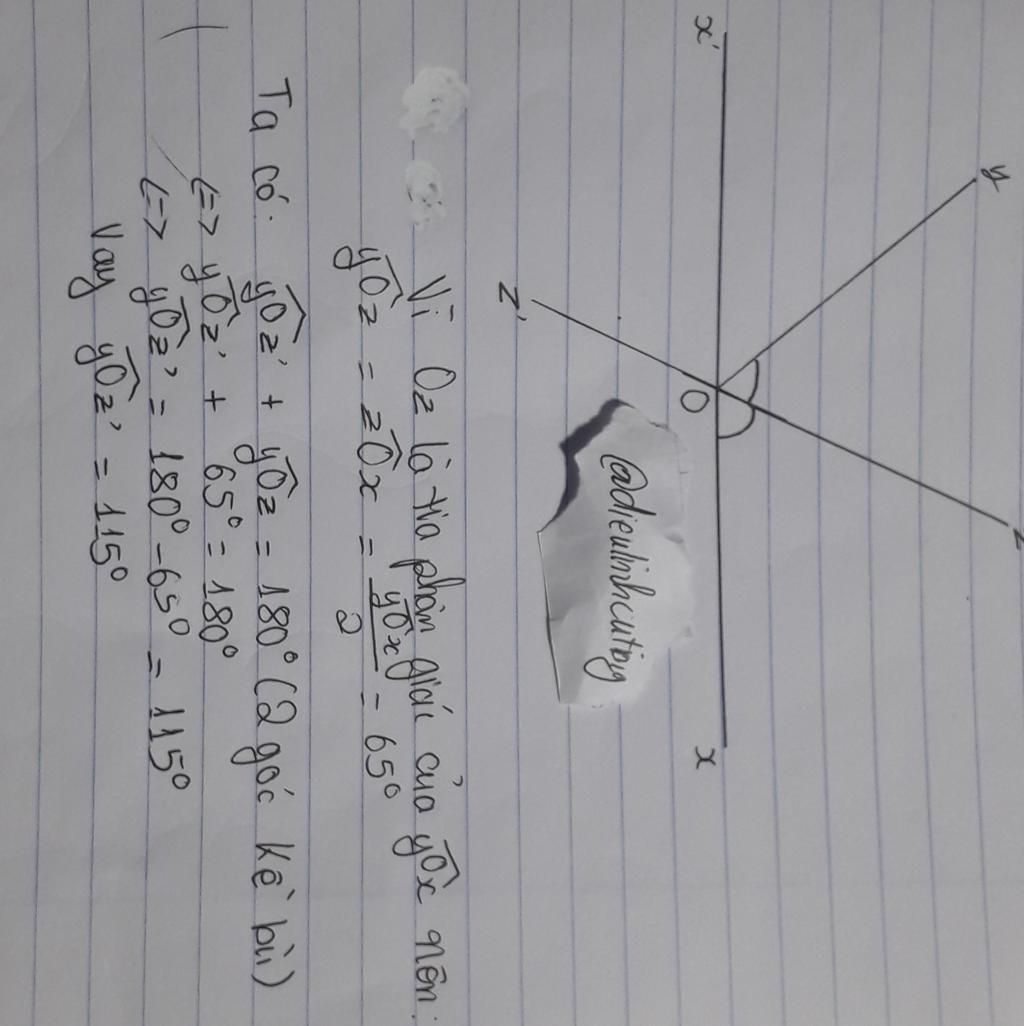 y
z
x'
O
x
z'
@dieulinhcuting
Vì Oz là tia phân giác của yOx nên:
yOz = zOx = yOx/2 = 65°
Ta có: yOz' + yOz = 180° (2 góc kề bù)
<=> yOz' + 65° = 180°
<=> yOz' = 180° - 65° = 115°
Vay yOz' = 115°